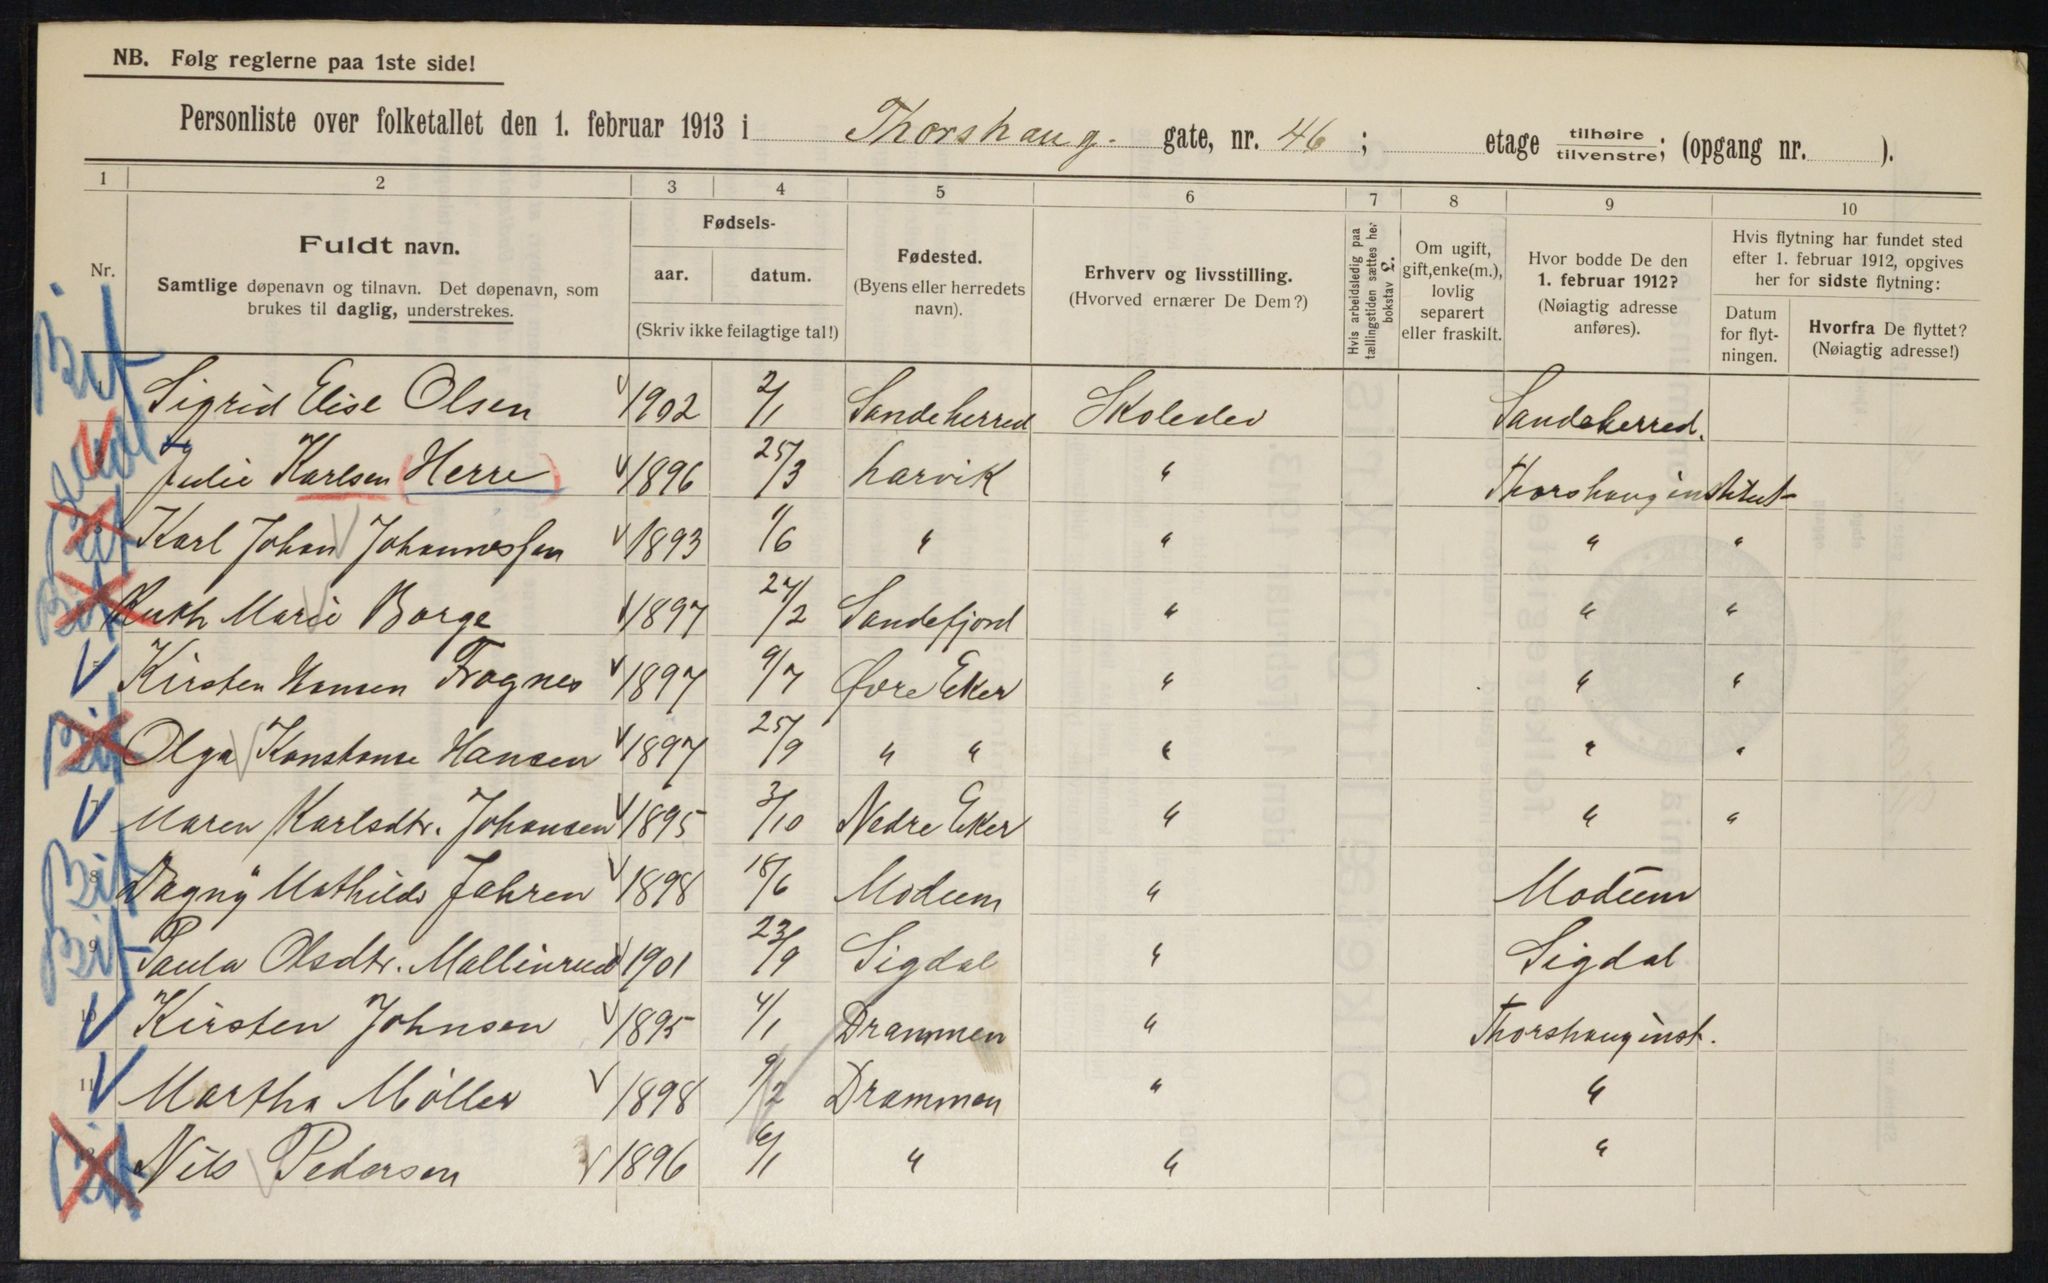 NB. Følg reglerne paa 1ste side!
Personliste over folketallet den 1. februar 1913 i Thorshaug. gate, nr. 46; etage tilhøire/tilvenstre; (opgang nr. ).
1 2 3 4 5 6 7 8 9 10
Nr.
Fuldt navn.
Samtlige døpenavn og tilnavn. Det døpenavn, som
brukes til daglig, understrekes.
Fødsels-
aar. datum.
(Skriv ikke feilagtige tal!)
Fødested.
(Byens eller herredets
navn).
Erhverv og livsstilling.
(Hvorved ernærer De Dem?)
Hvis arbeidsledig paa
tællingstiden sættes her
bokstav L.
Om ugift,
gift, enke(m.),
lovlig
separert
eller fraskilt.
Hvor bodde De den
1. februar 1912?
(Nøiagtig adresse
anføres).
Hvis flytning har fundet sted
efter 1. februar 1912, opgives
her for sidste flytning:
Datum
for flyt-
ningen.
Hvorfra De flyttet?
(Nøiagtig adresse!)
Sigrid Elise Olsen 1902 2/1 Sandeherred Skoleelev Sandeherred.
Julie Karlsen (Herre) 1896 25/3 Larvik " Thorshaug institut
3 Karl Johan Johannessen 1893 11/6 " " " "
Ruth Marie Borge 1897 27/2 Sandefjord " " "
5 Kirsten Hansen Frognes 1897 9/7 Øvre Eker " " "
Olga Konstanse Hansen 1897 25/9 " " " " "
7 Maren Karlsdtr. Johansen 1895 3/10 Nedre Eker " " "
8 Dagny Mathilde Jahren 1898 18/6 Modum " Modum
9 Paula Olsdtr. Mallinrud 1901 23/9 Sigdal " Sigdal
10 Kirsten Johnsen 1895 4/1 Drammen " Thorshaug inst.
11 Martha Møller 1898 9/2 Drammen " "
12 Nils Pedersen 1896 6/1 " " "